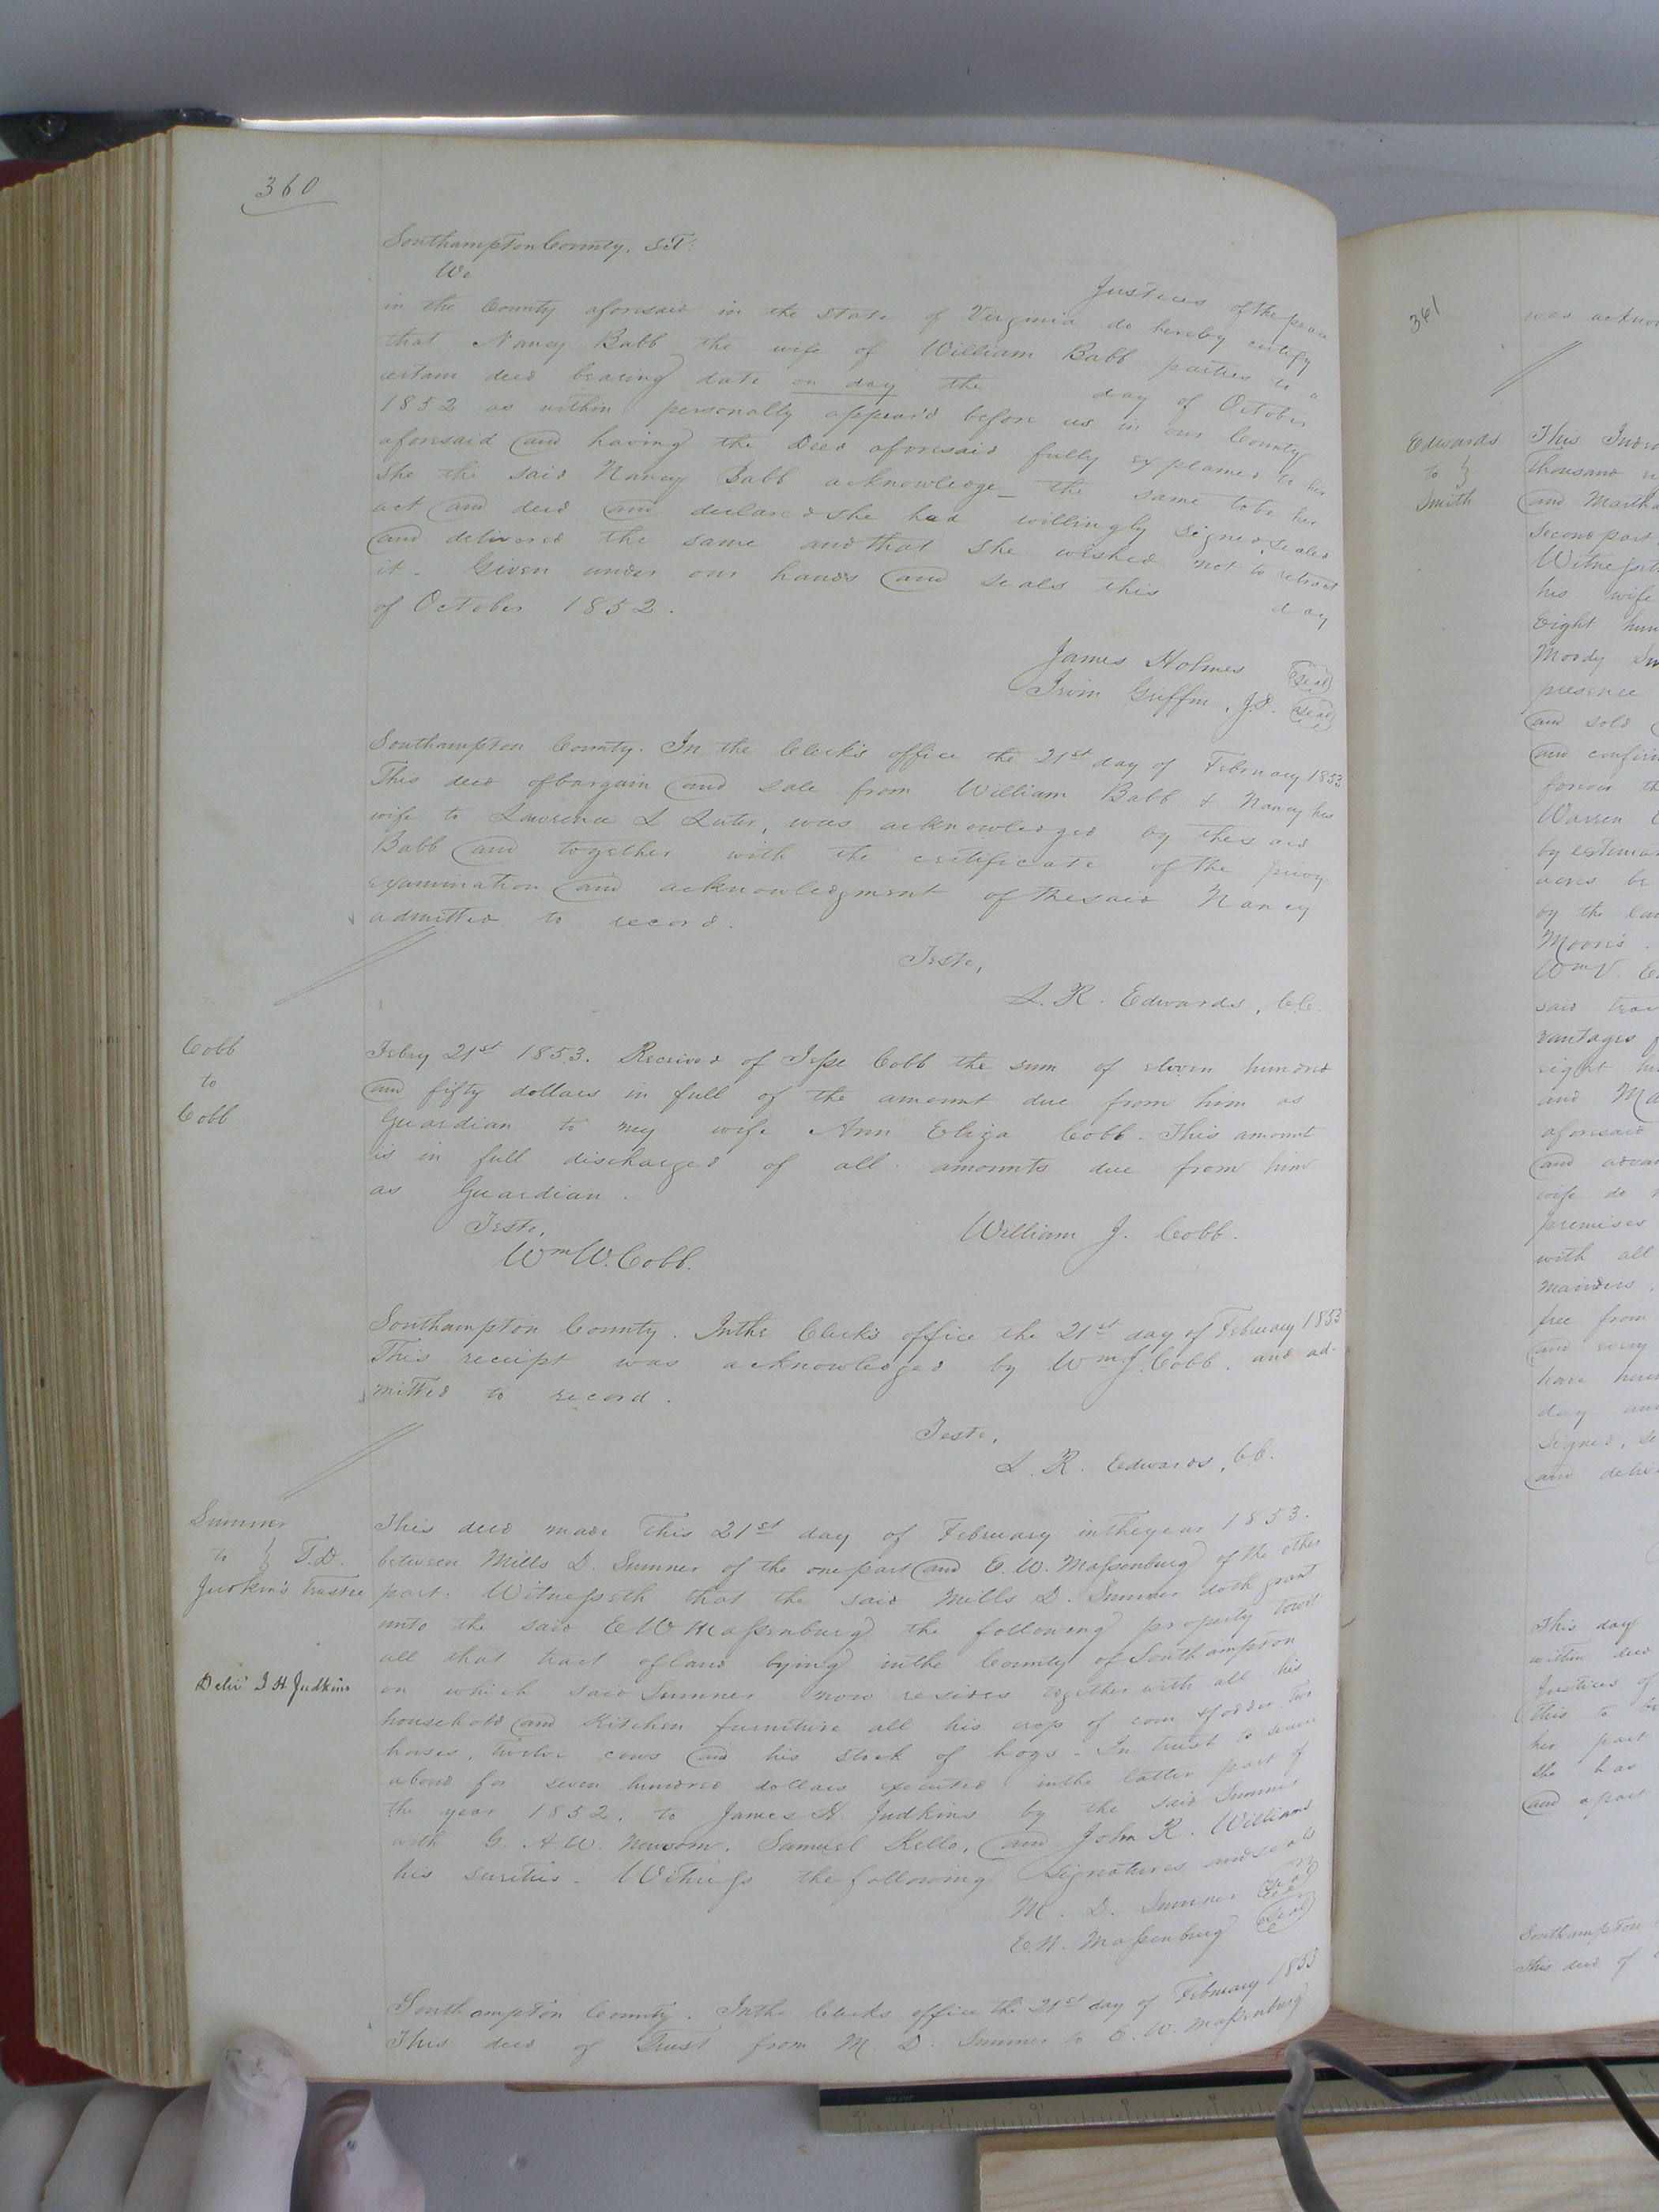 360
Southampton County, SCT:
We Justices of the peace
in the County aforesaid in the State of Virginia do hereby certify
that Nancy Babb the wife of William Babb parties to a
certain deed bearing date on day the day of October
1852 as within personally appeard before us in our County
aforesaid and having the Deed aforesaid fully explained to her
She the said Nancy Babb acknowledge the same to be her
act and deed and declared she had willingly signed, sealed
and delivered the same and that she wished not to retract
it. Given under our hands and seals this day
of October 1852.
James Holmes Seal
Irvin Griffin, J.P. Seal
Southampton County. In the Clerk's office the 21st day of February 1853
This deed of bargain and sale from William Babb & Nancy his
wife to Lawrence L Luter, was acknowledged by the said
Babb and together with the certificate of the privy
examination and acknowledgment of the said Nancy
admitted to record.
Teste,
L. R. Edwards, C.C.
Cobb
to
Cobb
Febry 21st 1853. Received of Jesse Cobb the sum of eleven hundred
and fifty dollars in full of the amount due from him as
Guardian to my wife Ann Eliza Cobb. This amount
is in full discharged of all amounts due from him
as Guardian.
Teste, William J. Cobb.
Wm W. Cobb.
Southampton County. In the Clerk's office the 21st day of February 1853
This receipt was acknowledged by Wm J. Cobb. and ad-
mitted to record.
Teste,
L. R. Edwards, C.C.
Sumner
to } T.D.
Judkin's Trustee
Deliv'd J H Judkins
This deed made This 21st day of February in the year 1853.
between Mills D. Sumner of the one part and E. W. Massenburg of the other
part. Witnesseth that the said Mills D. Sumner doth grant
unto the said E W Massenburg the following property towit:
all that tract of land lying in the County of Southampton
on which said Sumner now resides together with all his
household and Kitchen furniture all his crop of corn & fodder. two
horses, twelve cows and his stock of hogs - In trust to secure
a bond for seven hundred dollars executed in the latter part of
the year 1852. to James H. Judkins by the said Sumner
with G. A. W. Newsom, Samuel Kello, and John R. Williams
his sureties. Witness the following signatures and seals
M. D. Sumner Seal
E. W. Massenburg Seal
Southampton County. In the Clerks office the 21st day of February 1853
This deed of Trust from M. D. Sumner to E. W. Massenburg
361
was
Edwards
to }
Smith
This
Thousand
and Martha
second part
his wife
Eight
Moody
presence
and sold
and
Warren
by
acres be
by the
Moore's
Wm V.
said
vantages
right
and
aforesaid
and
wife do
premises
with all
mainders,
free from
and every
have
day
signed,
and
This day
within deed
Justices of
this to
her part
she has
and apart
Southampton
This deed of